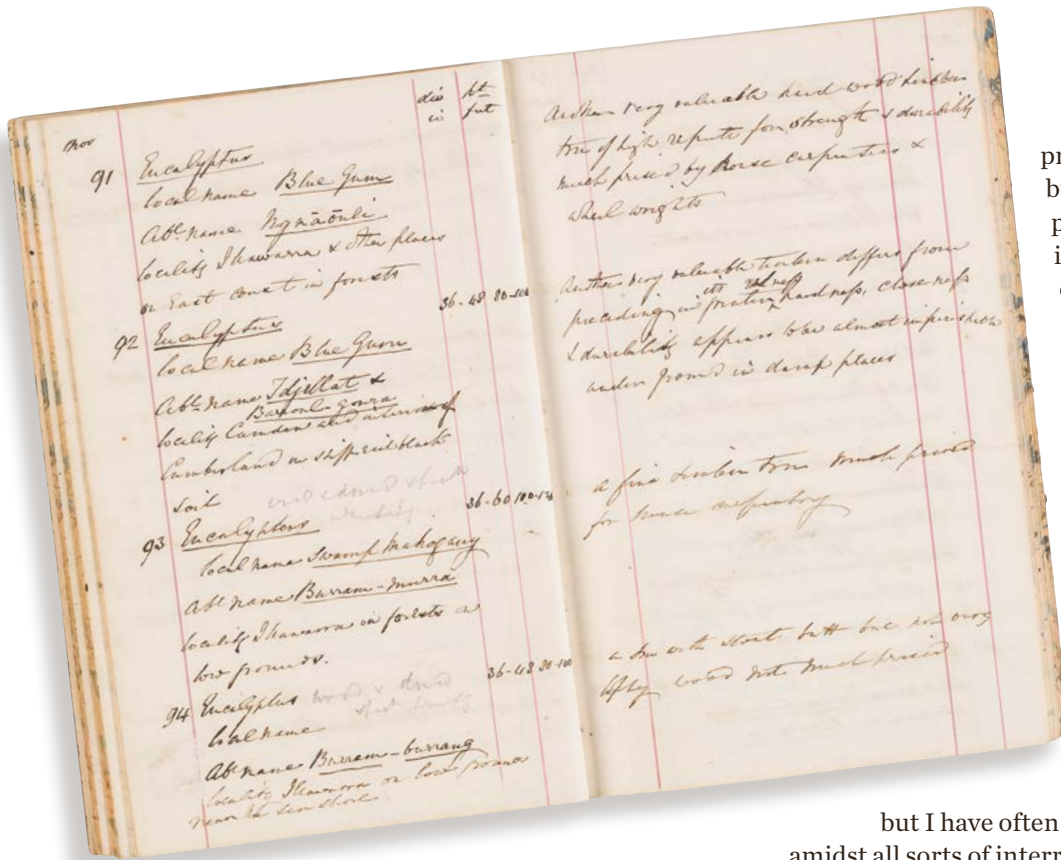 Nos
dia ht
in feet
91 Eucalyptus
local name Blue Gum
Abl name
locality Illawarra & other places
on East coast in forests
36-48 80-100
92 Eucalyptus
local name Blue Gum
Abl name Tdjellat &
Barroul-goura
locality Camden and interior of
Cumberland on stiff soil black
soil
36-60 100-120
93 Eucalyptus
local name Swamp Mahogany
Abl name Burram-murra
locality Illawarra in forests on
low grounds.
36-48 80-100
94 Eucalyptus wood
local name
Abl name Burram-burrang
locality Illawarra on low grounds
near the sea shore
Another very valuable hard wood timber
tree of high repute for strength & durability
much prised by house carpenters &
wheel wrights
Another very valuable timber differs from
its redness
preceding in greater hardness, closeness
& durability appears to be almost imperishable
under ground in damp places
a fine timber tree much prised
for house carpentry
a tree with stout butt but not very
lofty wood not much prised
pr
b
p
i
but I have often
amidst all sorts of interr